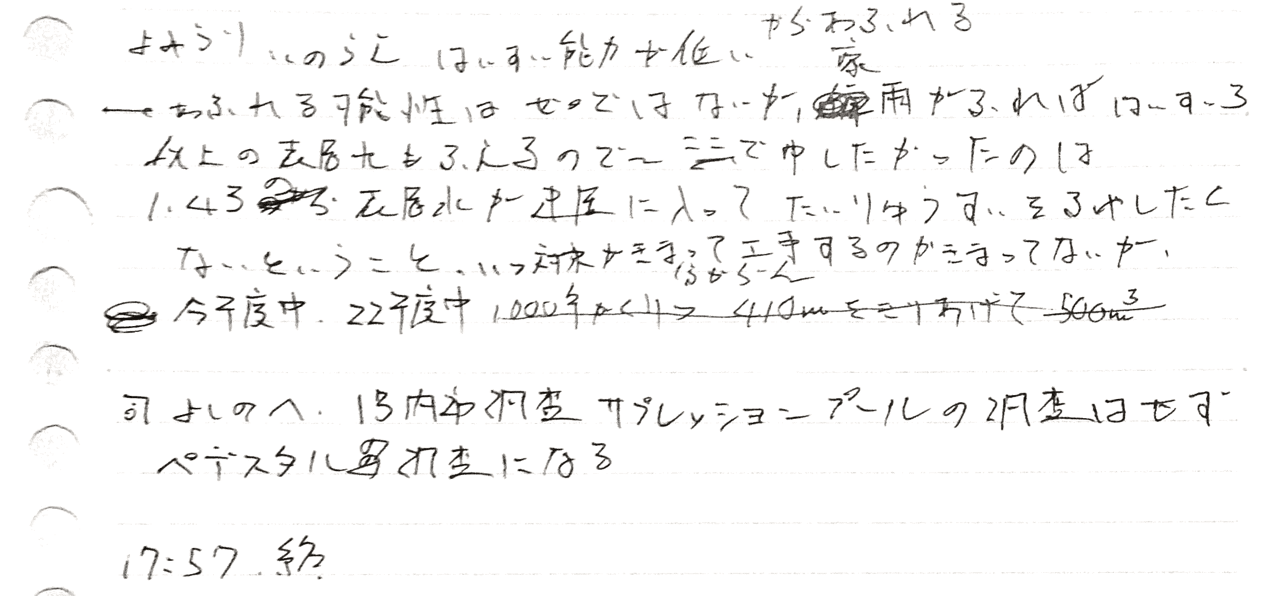 よみうり いのうえ はいすい能力が低い からあふれる
← あふれる可能性はぜロではないが、雨がふればはいすいろ
以上の表層水もふえるので〜 ここで申したかったのは
1.43 表層水が建屋に入って たいりゅうすいをふやしたく
ないということ、いつ対策がきまって工事するのかきまってないが、
分からーん
今年度中、22年度中 1000年かくりつ 410mmをきりあげて 500m³
司 よしのへ、1号内部調査 サプレッションプールの調査はせず
ペデスタル 調査になる
17:57 終